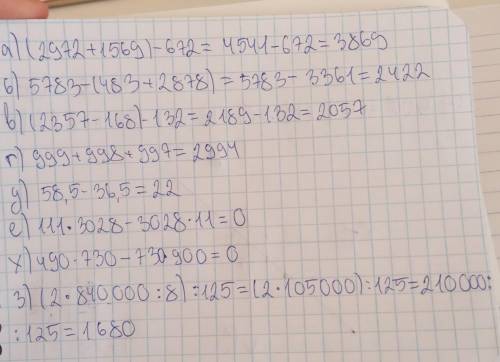 а) (2972+1569)-672= 4541-672=3869
б) 5783-(483+2878)=5783-3361=2422
в) (2357-168)-132=2189-132=2057
г) 999+998+997=2994
д) 58,5-36,5=22
е) 111·3028-3028·11=0
х) 490·730-730·900=0
З) (2·840.000:8):125=(2·105000):125=210000:
:125=1680